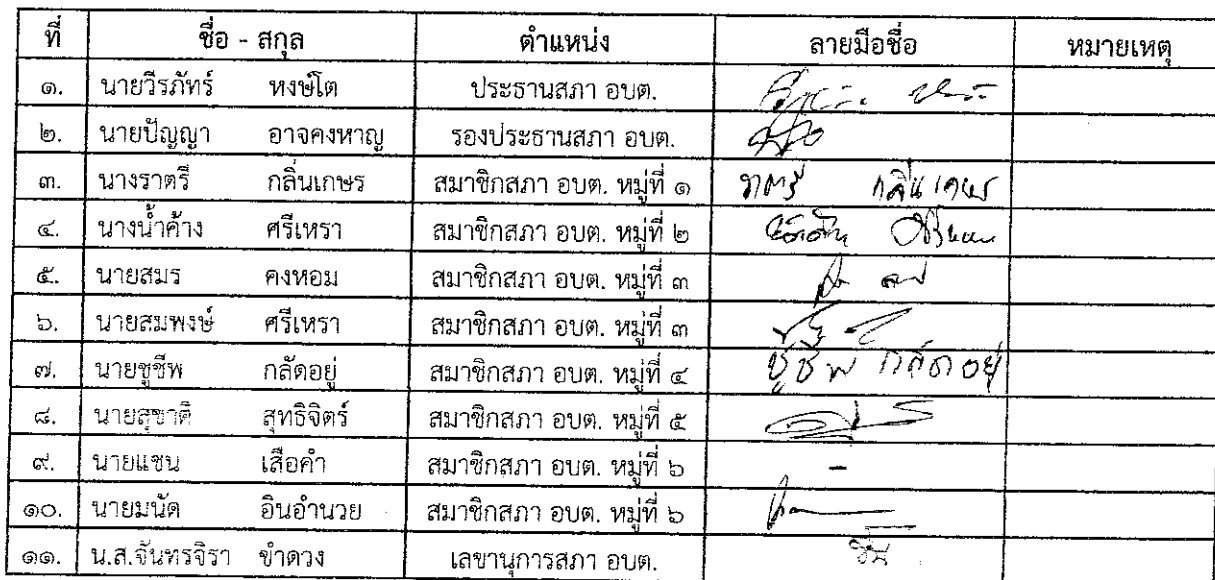 ที่ ชื่อ - สกุล ตำแหน่ง ลายมือชื่อ หมายเหตุ
๑. นายวีรภัทร์ หงษ์โต ประธานสภา อบต.
๒. นายปัญญา อาจคงหาญ รองประธานสภา อบต.
๓. นางราตรี กลิ่นเกษร สมาชิกสภา อบต. หมู่ที่ ๑ ราตรี กลิ่นเกษร
๔. นางน้ำค้าง ศรีเหรา สมาชิกสภา อบต. หมู่ที่ ๒
๕. นายสมร คงหอม สมาชิกสภา อบต. หมู่ที่ ๓
๖. นายสมพงษ์ ศรีเหรา สมาชิกสภา อบต. หมู่ที่ ๓
๗. นายชูชีพ กลัดอยู่ สมาชิกสภา อบต. หมู่ที่ ๔ ชูชีพ กลัดอยู่
๘. นายสุชาติ สุทธิจิตร์ สมาชิกสภา อบต. หมู่ที่ ๕
๙. นายแชน เสือคำ สมาชิกสภา อบต. หมู่ที่ ๖ -
๑๐. นายมนัด อินอำนวย สมาชิกสภา อบต. หมู่ที่ ๖
๑๑. น.ส.จันทรจิรา ขำดวง เลขานุการสภา อบต.